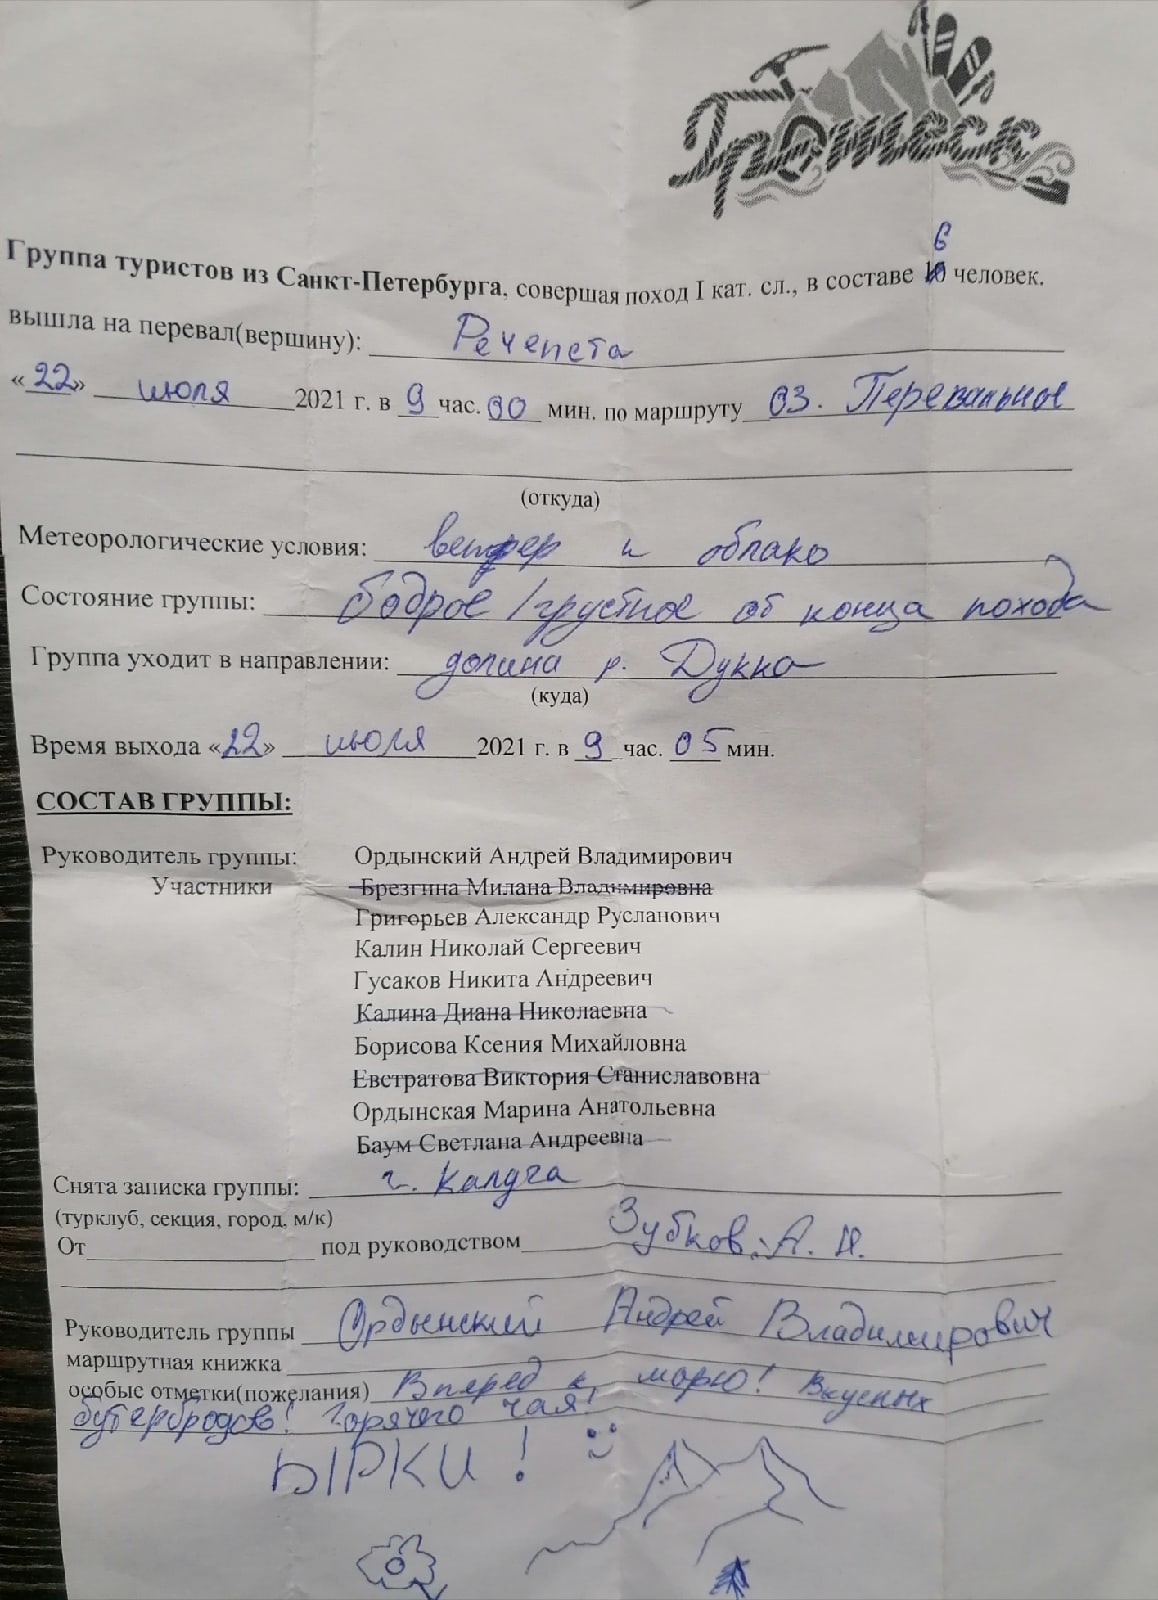 Гротеск
6
Группа туристов из Санкт-Петербурга, совершая поход I кат. сл., в составе 10 человек.
вышла на перевал(вершину): Речепста
«22» июля 2021 г. в 9 час. 00 мин. по маршруту оз. Перевальное
(откуда)
Метеорологические условия: ветер и облако
Состояние группы: бодрое / грустное от конца похода
Группа уходит в направлении: долина р. Дукка
(куда)
Время выхода «22» июля 2021 г. в 9 час. 05 мин.
СОСТАВ ГРУППЫ:
Руководитель группы: Ордынский Андрей Владимирович
Участники Брезгина Милана Владимировна
Григорьев Александр Русланович
Калин Николай Сергеевич
Гусаков Никита Андреевич
Калина Диана Николаевна
Борисова Ксения Михайловна
Евстратова Виктория Станиславовна
Ордынская Марина Анатольевна
Баум Светлана Андреевна
Снята записка группы: г. Калуга
(турклуб, секция, город, м/к)
От под руководством Зубков. А. Н.
Руководитель группы Ордынский Андрей Владимирович
маршрутная книжка
особые отметки(пожелания) Вперёд к морю! Вкусных
бутербродов! Горячего чая!
ЫРКИ!